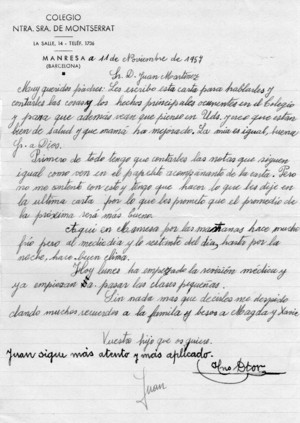 COLEGIO
NTRA. SRA. DE MONTSERRAT
LA SALLE, 14 - TELÉF. 1726
MANRESA a 11 de Noviembre de 1957
(BARCELONA)
Sr. D. Juan Martínez
Muy queridos padres: Les escribo esta carta para hablarles y
contarles las cosas y los hechos principales ocurrentes en el Colegio
y para que además vean que pienso en Uds. y veo que estan
bien de salud y que mamá ha mejorado. La mía es igual, buena
gr. a Dios.
Primero de todo tengo que contarles las notas que siguen
igual como ven en el papelito acompañante de la carta. Pero
no me contento con esto y tengo que hacer lo que les dije en
la ultima carta por lo que les prometo que el promedio de
la próxima será más bueno.
Aquí en Manresa por las mañanas hace mucho
frío pero al mediodía y lo restante del día, hasta por la
noche, hace buen clima.
Hoy lunes ha empezado la revisión médica y
ya empiezan a pasar las clases pequeñas.
Sin nada mas que decirles me despido
dando muchos recuerdos a la familia y besos a Magda y Xavier
Vuestro hijo que os quiere.
Juan sigue más atento y más aplicado.
Hno Dtor
Juan